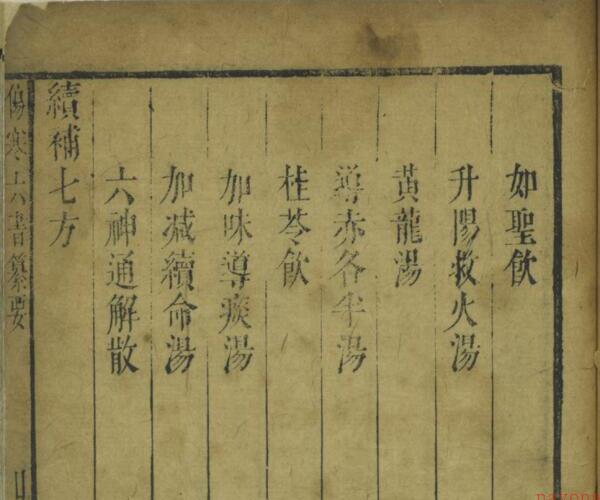 如聖飲
升陽救火湯
黃龍湯
導赤各半湯
桂苓飲
加味導痰湯
加減續命湯
六神通解散
續補七方
傷寒六書纂要